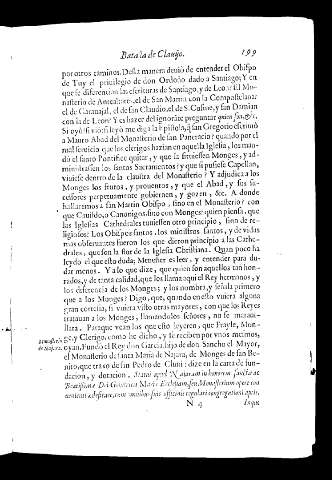 Batalla de Clauijo. 199
por otros caminos. Desta manera deuio de entender el Obispo
de Tuy el priuilegio de don Ordoño dado a Santiago; Y en
que se diferencian las escrituras de Santiago, y de Leon? El Mo-
nasterio de Antealtares, el de San Martin con la Compostelana?
el de Carauatal, el de san Claudio, el de S. Cosme, y san Damian
con la de Leon? Y es hazer del ignorāte preguntar quien son, &c,
Si oyò, ò vio, ò leyò me diga la Epistola, q̃ san Gregorio escriuiò
a Mauro Abad del Monasterio de san Pancracio? quando por el
mal seruicio que los clerigos hazian en aquella Iglesia, los man-
dó el santo Pontifice quitar, y que la siruiessen Monges, y ad-
ministrassen los santos Sacramentos; y que si pusiesse Capellan,
viuiesse dentro de la clausura del Monasterio? Y adjudica a los
Monges los frutos, y prouentos, y que el Abad, y sus su-
cessores perpetuamente gobiernen, y gozen, &c. A donde
hallaremos a san Martin Obispo, sino en el Monasterio? con
que Cauildo, o Canonigos, sino con Monges: quien piensa, que
las Iglesias Cathedrales tuuiessen otro principio, sino de re-
ligiosos? Los Obispos santos, los ministros santos, y de vidas
mas obseruantes fueron los que dieron principio a las Cathe-
drales, que son la flor de la Iglesia Christiana. Quan poco ha
leydo el que esto duda; Menester es leer, y entender para du-
dar menos. Y a lo que dize, que quien son aquellos tan hon-
rados, y de tanta calidad, que los llama aqui el Rey hermanos, y
los diferencia de los Monges; y los nombra, y señala primero
que a los Monges? Digo, que, quando en esto vuiera alguna
gran cortesia, si vuiera visto otras mayores, con que los Reyes
tratauan a los Monges, llamandolos señores, no se marauí-
llara. Paraque vean los que esto leyeren, que Frayle, Mon-
ge, y Clerigo, como he dicho, y se reciben por vnos mesmos,
oyan. Fundò el Rey don Garcia hijo de don Sancho el Mayor,
el Monasterio de santa Maria de Najara, de Monges de san Be-
nito, que traxo de san Pedro de Cluni: dize en la carta de fun-
dacion, y dotacion.
Monasterio de Najara.
N 4